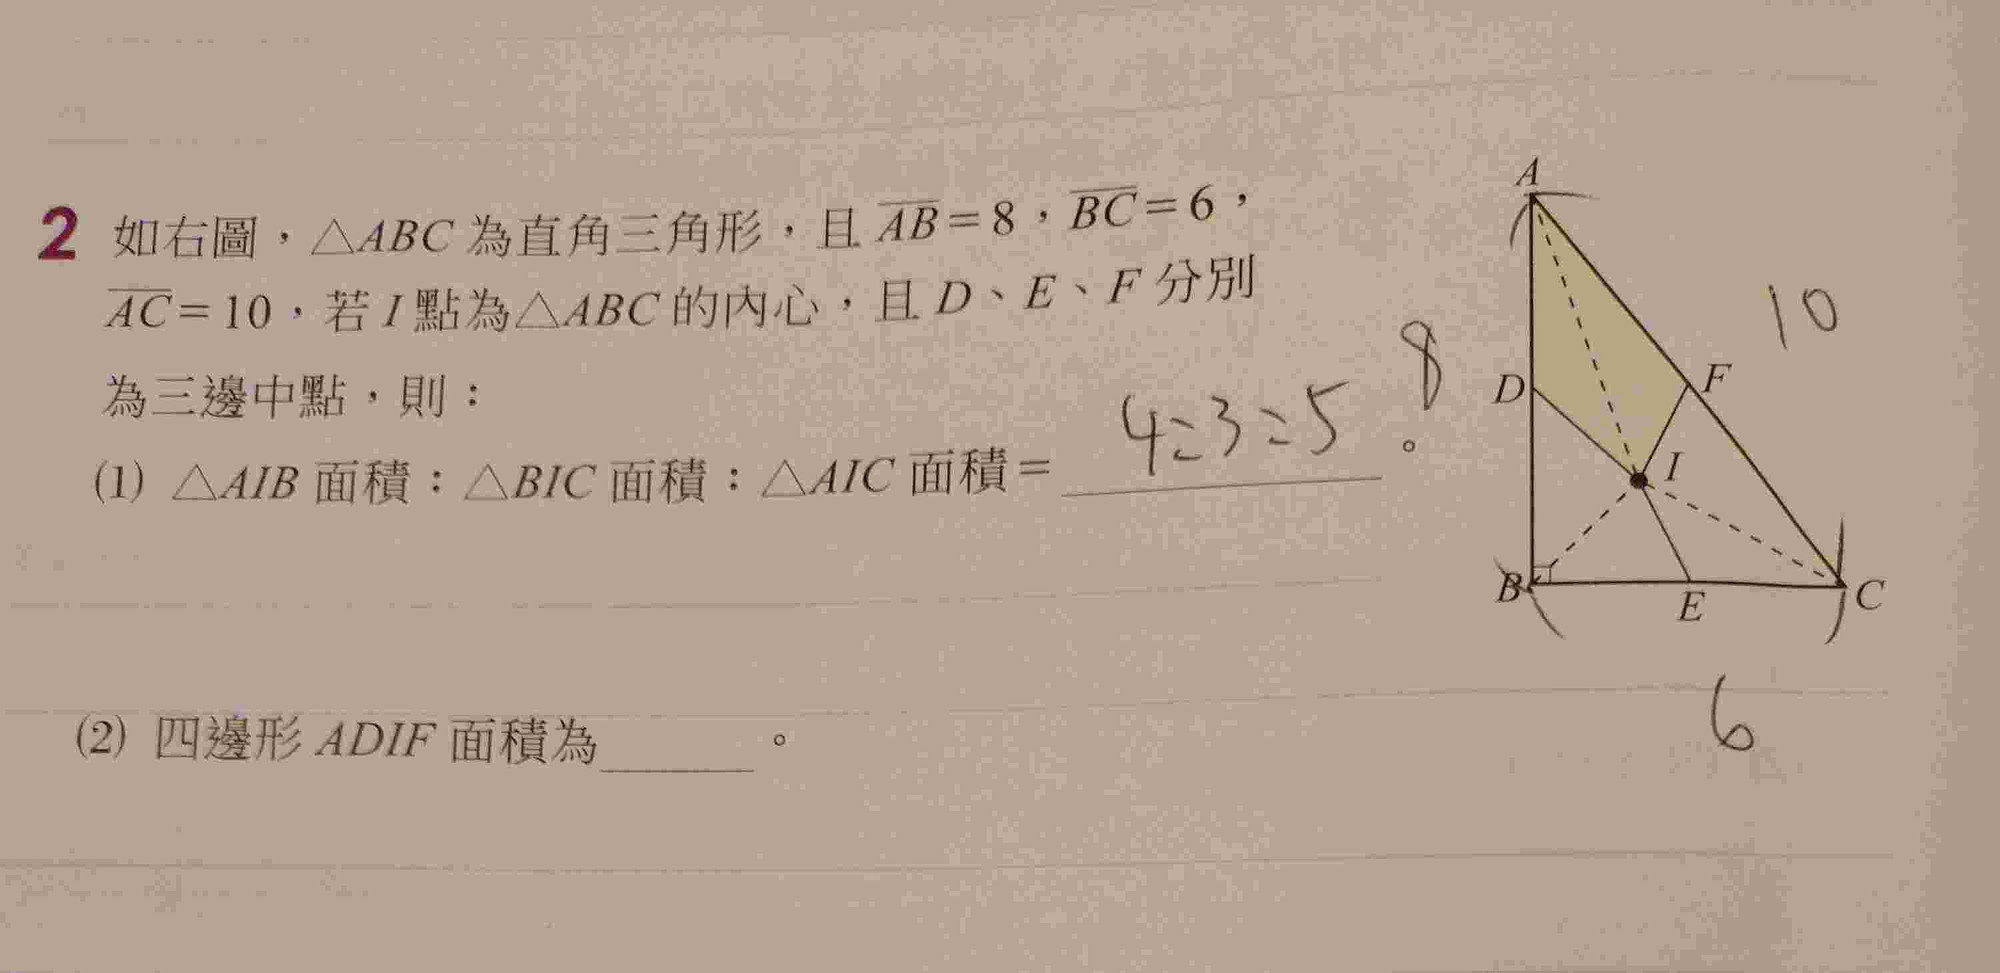 2 如右圖，△ABC 為直角三角形，且 AB=8，BC=6，
AC=10，若 I 點為△ABC 的內心，且 D、E、F 分別
為三邊中點，則：
(1) △AIB 面積：△BIC 面積：△AIC 面積= 4:3:5 。
(2) 四邊形 ADIF 面積為______。
A
10
8
D
F
I
B
E
C
6